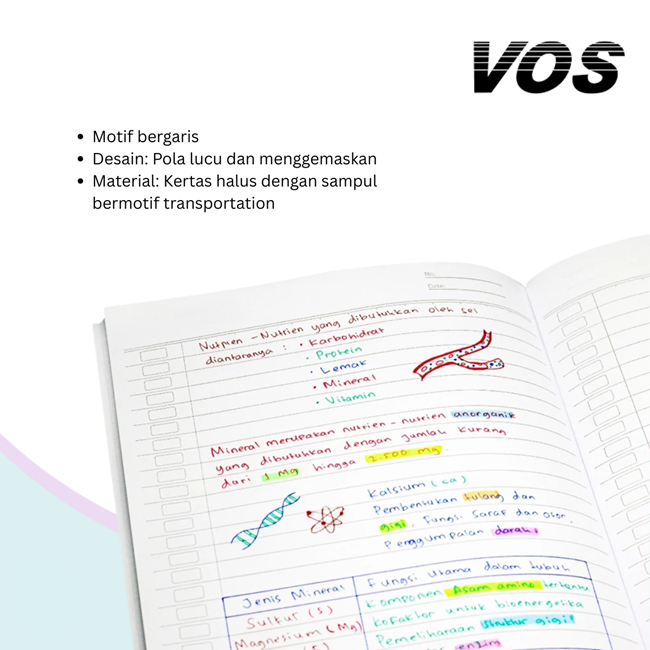 VOS
Motif bergaris
Desain: Pola lucu dan menggemaskan
Material: Kertas halus dengan sampul
bermotif transportation
No.
Date
Nutrien - Nutrien yang dibutuhkan oleh sel
diantaranya : • Karbohidrat
• Protein
• Lemak
• Mineral
• Vitamin
Mineral merupakan nutrien - nutrien anorganik
yang dibutuhkan dengan jumlah kurang
dari 1 Mg hingga 2.500 mg.
Kalsium (Ca)
Pembentukan tulang dan
gigi, fungsi saraf dan otot,
Penggumpalan darah
Jenis Mineral
Fungsi Utama dalam tubuh
Sulfur (S)
Komponen Asam amino tertentu
Magnesium (Mg)
Kofaktor untuk bioenergetika
Pemeliharaan Struktur gigi